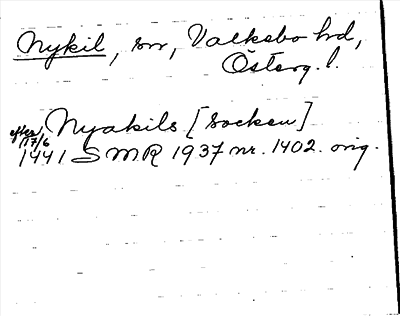 Nykil, sn, Valkebo hd,
Österg. l.
Nyakils [socken]
efter 17/6
1441 SMR 1937 nr. 1402. orig.